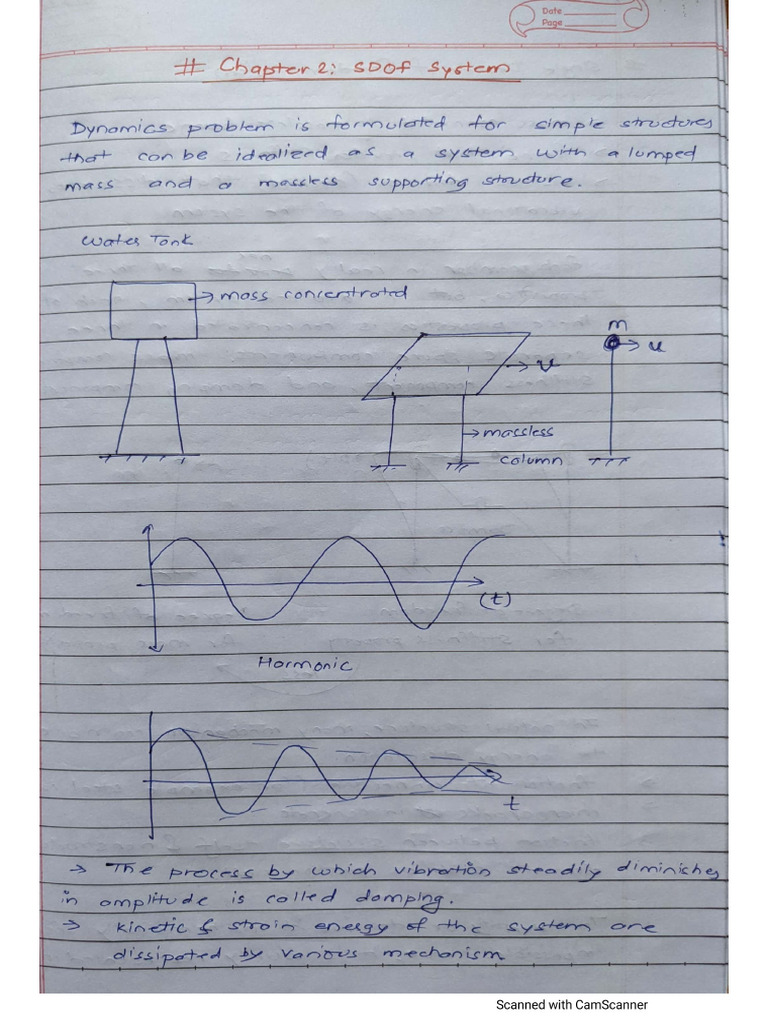 Date
Page
# Chapter 2: SDOF System
Dynamics problem is formulated for simple structures
that can be idealized as a system with a lumped
mass and a massless supporting structure.
Water Tank
→ mass concentrated
m
→ u
→ u
→ massless
column
(t)
Hormonic
t
→ The process by which vibration steadily diminishes
in amplitude is called damping.
→ kinetic & strain energy of the system are
dissipated by various mechanism
Scanned with CamScanner